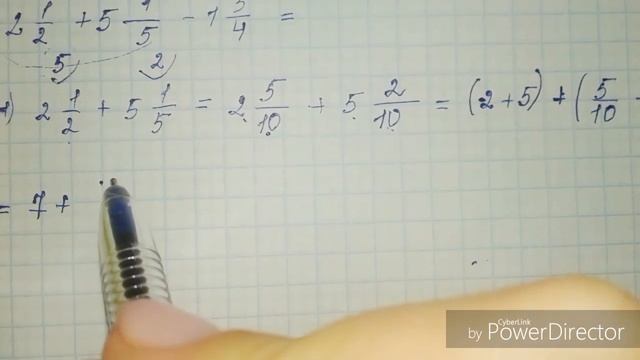 2 1/2 + 5 1/5 - 1 3/4 =
5 2
1) 2 1/2 + 5 1/5 = 2 5/10 + 5 2/10 = (2+5) + (5/10
= 7 +
CyberLink
by PowerDirector